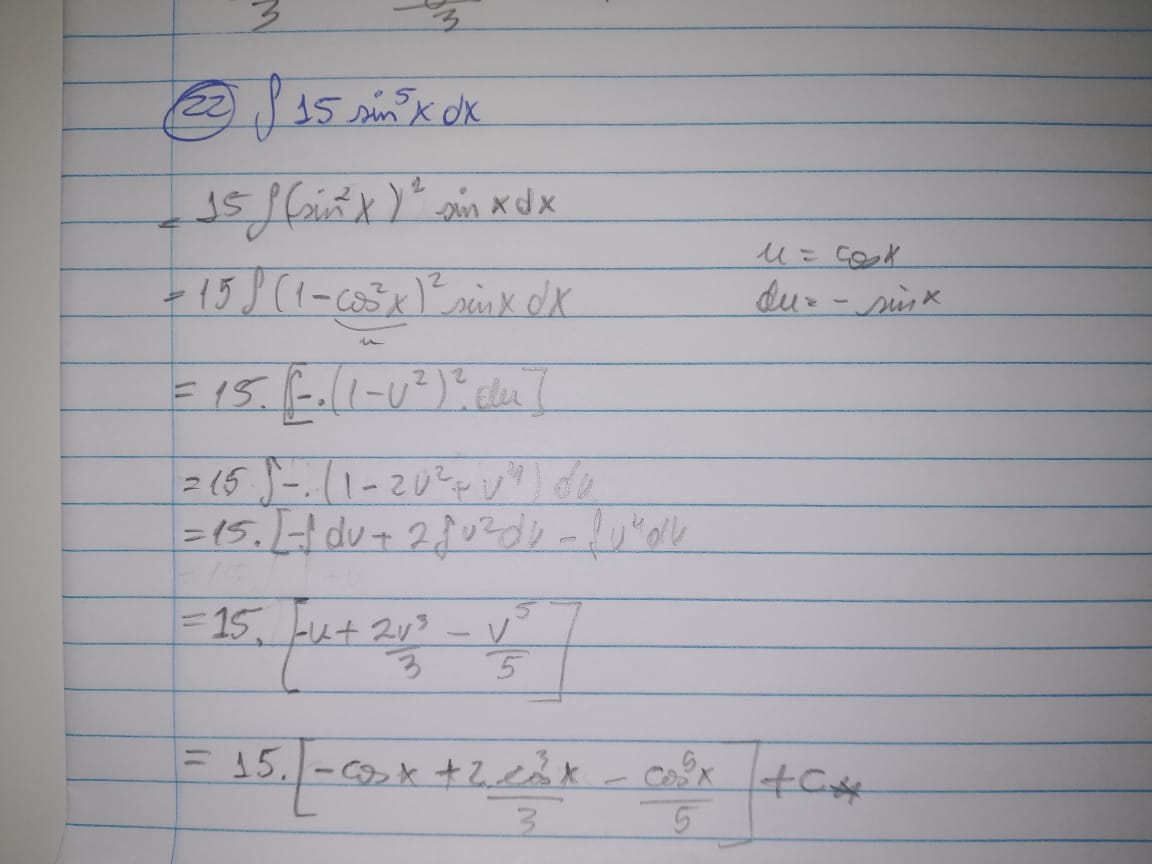 3 3
22 ∫ 15 sin⁵x dx
= 15 ∫(sin²x)² sin x dx
u = cos x
= 15 ∫ (1-cos²x)² sin x dx
du = - sin x
u
= 15. [∫-.(1-u²)². du]
= 15 ∫ -. (1 - 2u² + u⁴) du
= 15. [-∫ du + 2 ∫ u² du - ∫ u⁴ du
= 15. [-u + 2u³/3 - u⁵/5]
= 15. [-cos x + 2. cos³x/3 - cos⁵x/5] + C